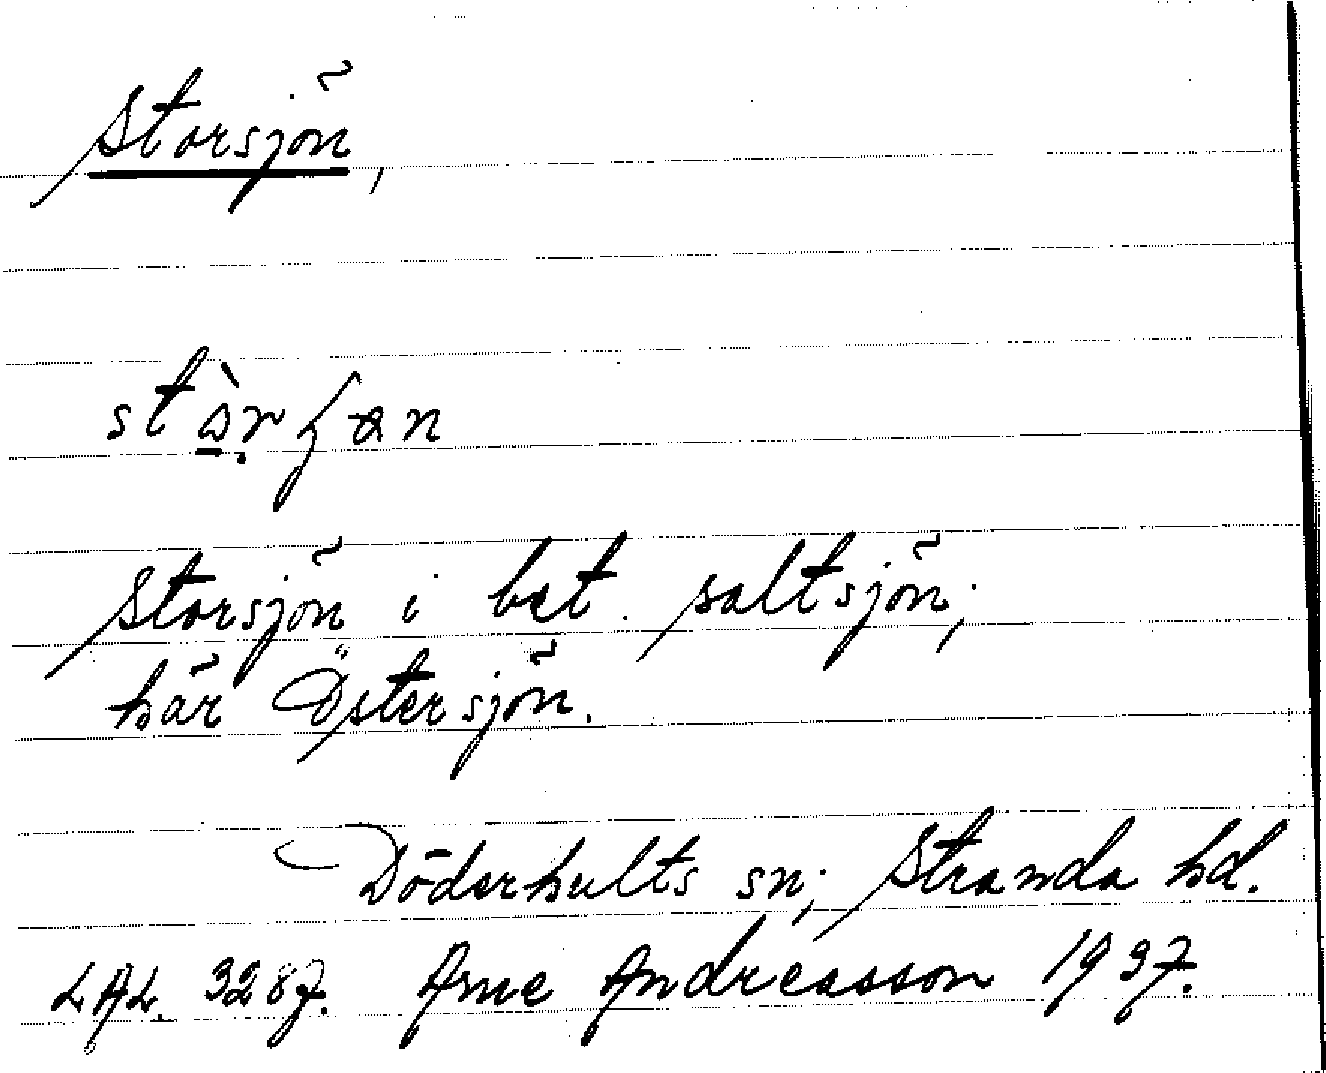 Storsjön,
Storsjön i bet. saltsjön;
här Östersjön.
Döderhults sn; Stranda hd.
LAL. 3287. Arne Andreasson 1937.